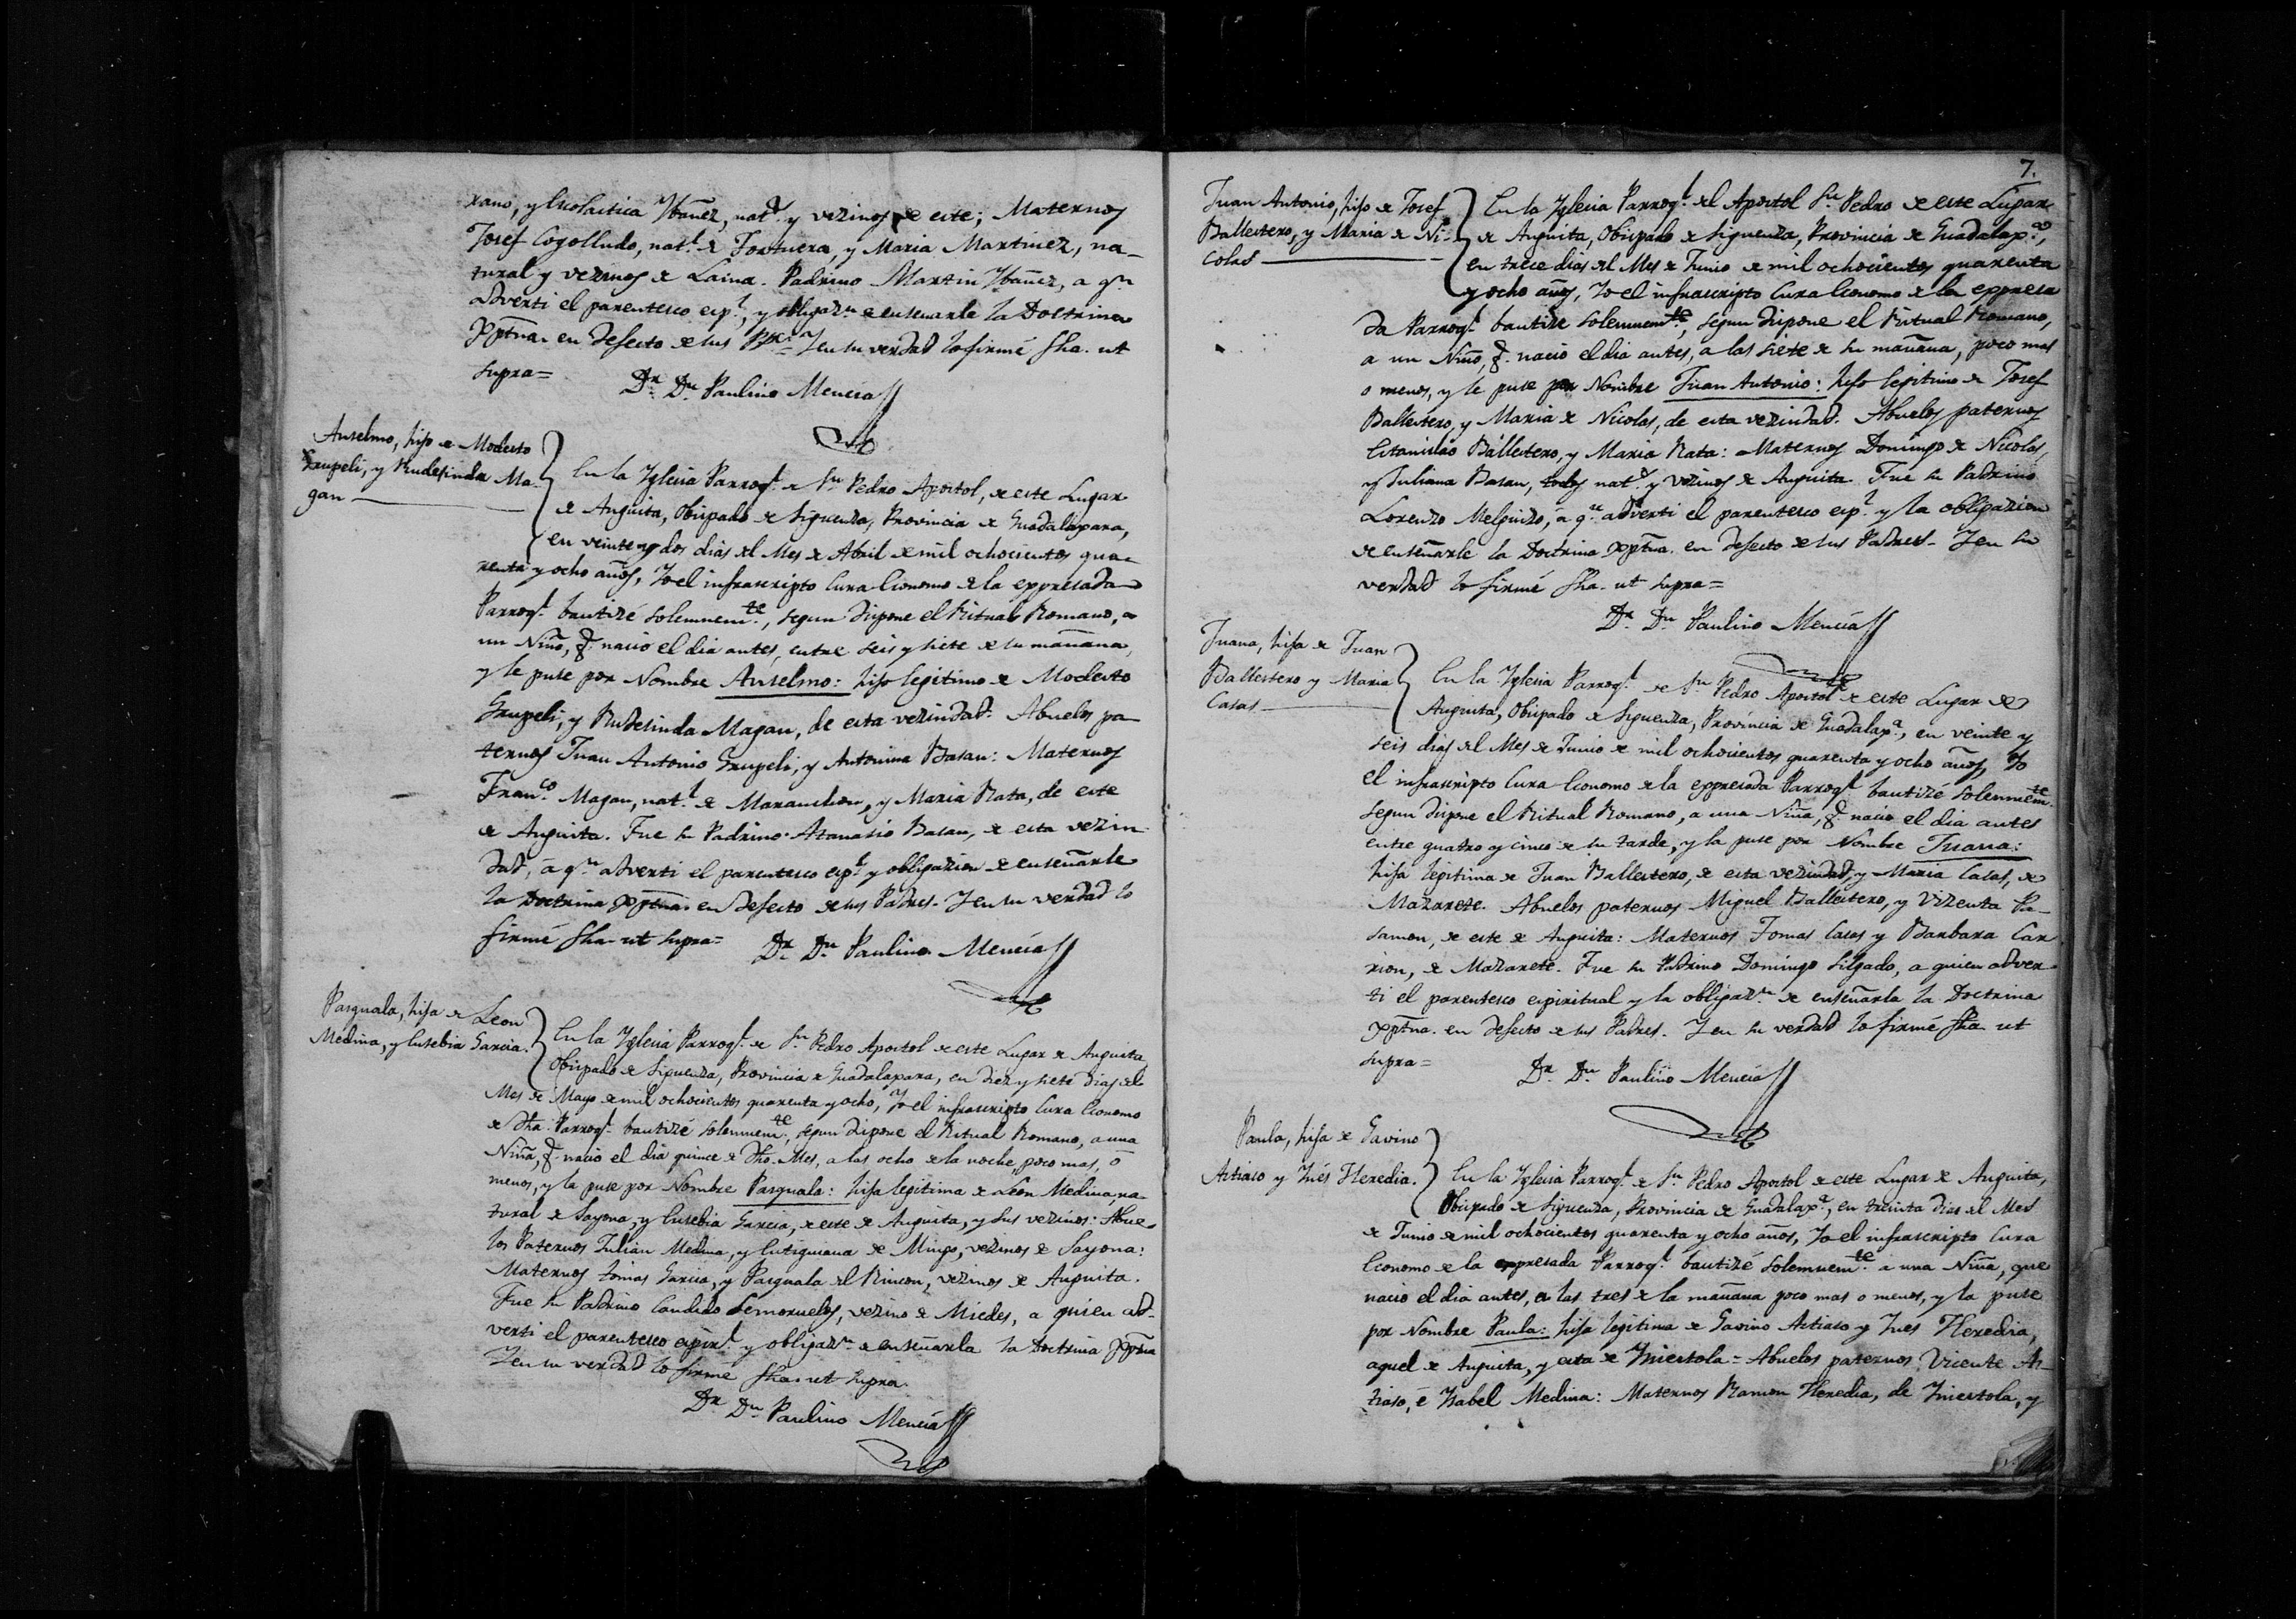 rano, y Escolastica Ybañez, nats. y vezinos de este; Maternos
Josef Cogolludo, natl. de Fortuera, y Maria Martinez, na-
tural y vezinos de Laina. Padrino Martin Ybañez, a qn.
adverti el parentesco espl., y obligazn. de enseñarle la Doctrina
Xptna. en defecto de sus Pres. Y en su verdad lo firmé fha. ut
supra=
Dr. Dn. Paulino Mencía
Anselmo, hijo de Modesto
Grupeli, y Rudesinda Ma-
gan
En la Yglesia Parroql. de Sn. Pedro Apostol, de este Lugar
de Anguita, Obispado de Siguenza, Provincia de Guadalaxara,
en veinte y dos dias del Mes de Abril de mil ochocientos qua-
renta y ocho años, Yo el infrascripto Cura Economo de la expresada
Parroql. bautizé solemnemte., segun dispone el Ritual Romano, a
un Niño, q. nacio el dia antes, entre seis y siete de su mañana,
y le puse por Nombre Anselmo: hijo legitimo de Modesto
Grupeli, y Rudesinda Magan, de esta vezindad. Abuelos pa-
ternos Juan Antonio Grupeli, y Antonina Basan: Maternos
Franco. Magan, natl. de Maranchon, y Maria Rata, de este
de Anguita. Fue su Padrino Atanasio Basan, de esta vezin-
dad, á qn. adverti el parentesco espl. y obligazion de enseñarle
la Doctrina Xptna. en defecto de sus Padres. Y en su verdad lo
firmé fha. ut supra=
Dr. Dn. Paulino Mencía
Pasquala, hija de Leon
Medina, y Eusebia Garcia.
En la Yglesia Parroql. de Sn. Pedro Apostol de este Lugar de Anguita
Obispado de Siguenza, Provincia de Guadalaxara, en diez y siete dias del
Mes de Mayo de mil ochocientos quarenta y ocho, Yo el infrascripto Cura Economo
de dha. Parroql. bautizé solemnemte., segun dispone el Ritual Romano, a una
Niña, q. nacio el dia quince de dho. Mes, a las ocho de la noche, poco mas, ó
menos, y la puse por Nombre Pasquala: hija legitima de Leon Medina, na-
tural de Sayona, y Eusebia Garcia, de este de Anguita, y sus vezinos: Abue-
los Paternos Julian Medina, y Eutiquiana de Mingo, vezinos de Sayona:
Maternos Tomas Garcia, y Pasquala del Rincon, vezinos de Anguita.
Fue su Padrino Candido Somoruelos, vezino de Miedes, a quien ad-
verti el parentesco espirl. y obligazn. de enseñarla la Doctrina Xptna
Y en su verdad lo firmé fha. ut supra.
Dr. Dn. Paulino Mencía
7.
Juan Antonio, hijo de Josef
Ballestero, y Maria de Ni-
colas
En la Yglesia Parroql. del Apostol Sn. Pedro de este Lugar
de Anguita, Obispado de Siguenza, Provincia de Guadalaxa.,
en trece dias del Mes de Junio de mil ochocientos quarenta
y ocho años, Yo el infrascripto Cura Economo de la expresa
da Parroql. bautizé solemnemte., segun dispone el Ritual Romano,
a un Niño, q. nacio el dia antes, a las siete de su mañana, poco mas
o menos, y le puse por Nombre Juan Antonio: hijo legitimo de Josef
Ballestero, y Maria de Nicolas, de esta vezindad. Abuelos paternos
Estanislao Ballestero, y Maria Rata: Maternos Domingo de Nicolas,
y Juliana Basan, todos nats. y vezinos de Anguita. Fue su Padrino
Lorenzo Melguizo, á qn. adverti el parentesco espl. y la obligazion
de enseñarle la Doctrina Xptna. en defecto de sus Padres. Y en su
verdad lo firmé fha. ut supra=
Dr. Dn. Paulino Mencía
Juana, hija de Juan
Ballestero y Maria
Casas
En la Yglesia Parroql. de Sn. Pedro Apostol de este Lugar de
Anguita, Obispado de Siguenza, Provincia de Guadalaxa., en veinte y
seis dias del Mes de Junio de mil ochocientos quarenta y ocho años, Yo
el infrascripto Cura Economo de la expresada Parroql. bautizé solemnemte.
segun dispone el Ritual Romano, a una Niña, q. nacio el dia antes
entre quatro y cinco de su tarde, y la puse por Nombre Juana:
hija legitima de Juan Ballestero, de esta vezindad, y Maria Casas, de
Mazarete. Abuelos paternos Miguel Ballestero, y Vizenta Pa-
samon, de este de Anguita: Maternos Tomas Casas y Barbara Car
rion, de Mazarete. Fue su Padrino Domingo Silgado, a quien adver-
ti el parentesco espiritual y la obligazn. de enseñarla la Doctrina
Xptna. en defecto de sus Padres. Y en su verdad lo firmé fha. ut
supra=
Dr. Dn. Paulino Mencía
Paula, hija de Gavino
Astiaso y Ynés Heredia.
En la Yglesia Parroql. de Sn. Pedro Apostol de este Lugar de Anguita,
Obispado de Siguenza, Provincia de Guadalaxa., en treinta dias del Mes
de Junio de mil ochocientos quarenta y ocho años, Yo el infrascripto Cura
Economo de la expresada Parroql. bautizé solemnemte. a una Niña, que
nacio el dia antes, a las tres de la mañana poco mas o menos, y la puse
por Nombre Paula: hija legitima de Gavino Astiaso y Ynes Heredia,
aquel de Anguita, y esta de Yniestola= Abuelos paternos Vicente As-
tiaso, é Ysabel Medina: Maternos Ramon Heredia, de Yniestola, y